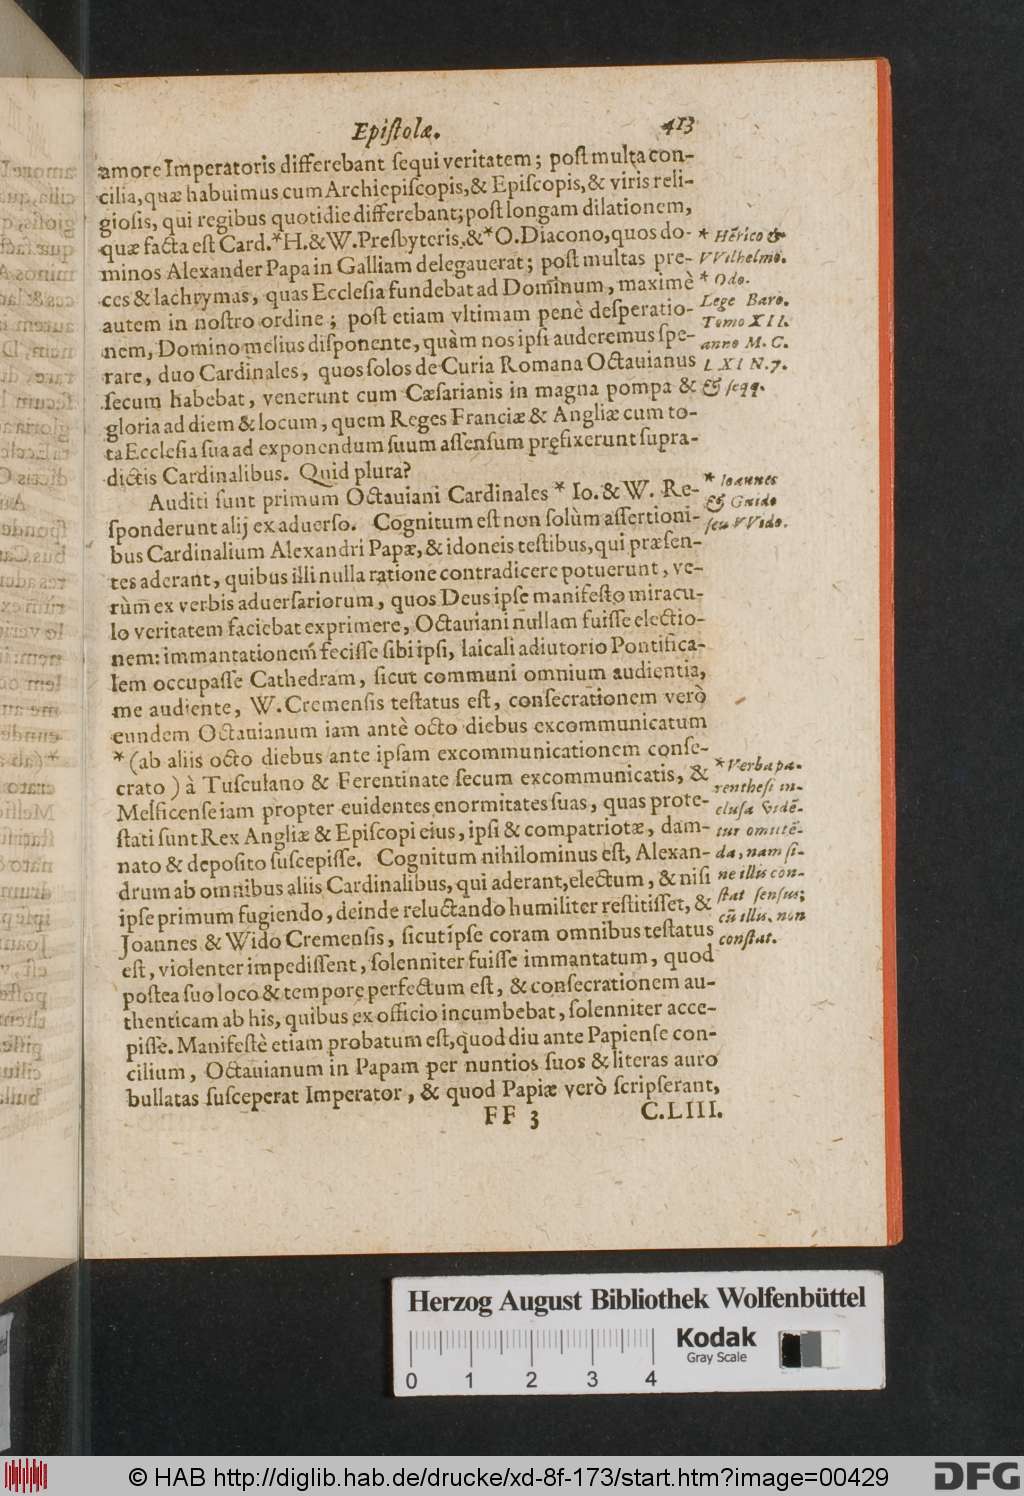 Epiſtolæ. 413
amore Imperatoris differebant ſequi veritatem; poſt multa con-
cilia, quæ habuimus cum Archiepiſcopis, & Epiſcopis, & viris reli-
gioſis, qui regibus quotidie differebant; poſt longam dilationem,
quæ facta eſt Card. *H. & W. Presbyteris, & *O. Diacono, quos do-
minos Alexander Papa in Galliam delegauerat; poſt multas pre-
ces & lachrymas, quas Eccleſia fundebat ad Dominum, maximè
autem in noſtro ordine; poſt etiam vltimam penè deſperatio-
nem, Domino melius diſponente, quàm nos ipſi auderemus ſpe-
rare, duo Cardinales, quos ſolos de Curia Romana Octauianus
ſecum habebat, venerunt cum Cæſarianis in magna pompa &
gloria ad diem & locum, quem Reges Franciæ & Angliæ cum to-
ta Eccleſia ſua ad exponendum ſuum aſſenſum pręfixerunt ſupra-
dictis Cardinalibus. Quid plura?
* Hērico &
VVilhelmo.
* Odo.
Lege Baro.
Tomo XII.
anno M. C.
LXI N. 7.
& ſeqq.
Auditi ſunt primum Octauiani Cardinales * Io. & W. Re-
ſponderunt alij ex aduerſo. Cognitum eſt non ſolùm aſſertioni-
bus Cardinalium Alexandri Papæ, & idoneis teſtibus, qui præſen-
tes aderant, quibus illi nulla ratione contradicere potuerunt, ve-
rùm ex verbis aduerſariorum, quos Deus ipſe manifeſto miracu-
lo veritatem faciebat exprimere, Octauiani nullam fuiſſe electio-
nem: immantationem feciſſe ſibi ipſi, laicali adiutorio Pontifica-
lem occupaſſe Cathedram, ſicut communi omnium audientia,
me audiente, W. Cremenſis teſtatus eſt, conſecrationem verò
eundem Octauianum iam antè octo diebus excommunicatum
* (ab aliis octo diebus ante ipſam excommunicationem conſe-
crato) à Tuſculano & Ferentinate ſecum excommunicatis, &
Melficenſe iam propter euidentes enormitates ſuas, quas prote-
ſtati ſunt Rex Angliæ & Epiſcopi eius, ipſi & compatriotæ, dam-
nato & depoſito ſuſcepiſſe. Cognitum nihilominus eſt, Alexan-
drum ab omnibus aliis Cardinalibus, qui aderant, electum, & niſi
ipſe primum fugiendo, deinde reluctando humiliter reſtitiſſet, &
Joannes & Wido Cremenſis, ſicut ipſe coram omnibus teſtatus
eſt, violenter impediſſent, ſolenniter fuiſſe immantatum, quod
poſtea ſuo loco & tempore perfectum eſt, & conſecrationem au-
thenticam ab his, quibus ex officio incumbebat, ſolenniter acce-
piſſe. Manifeſtè etiam probatum eſt, quod diu ante Papienſe con-
cilium, Octauianum in Papam per nuntios ſuos & literas auro
bullatas ſuſceperat Imperator, & quod Papiæ verò ſcripſerant,
* Ioannes
& Guido
ſeu VVido.
* Verba pa-
rentheſi in-
cluſa vidē-
tur omittē-
da, nam ſi-
ne illis con-
ſtat ſenſus;
cū illis, non
conſtat.
FF 3 C. LIII.
Herzog August Bibliothek Wolfenbüttel
Kodak
Gray Scale
0 1 2 3 4
© HAB http://diglib.hab.de/drucke/xd-8f-173/start.htm?image=00429
DFG